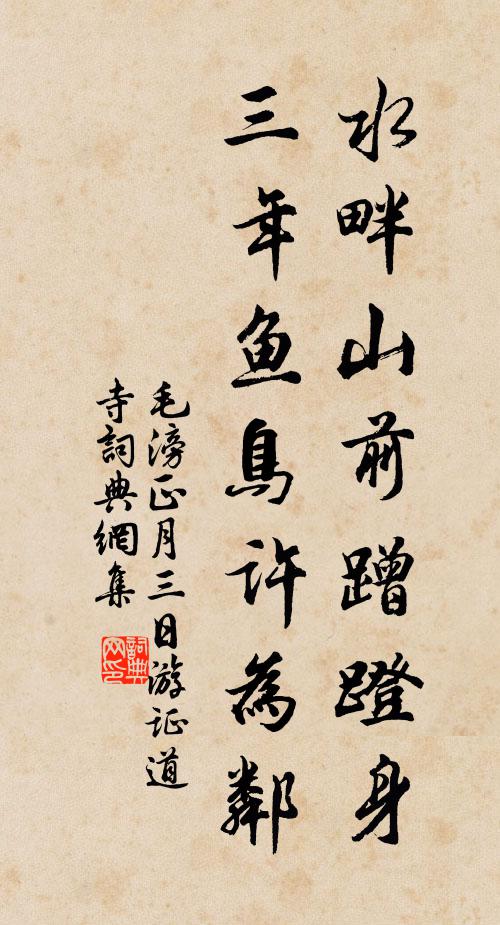 水畔山前蹭蹬身
三年鱼鳥许為鄰
毛滂正月三日游证道
寺詞典網集
詞典网印